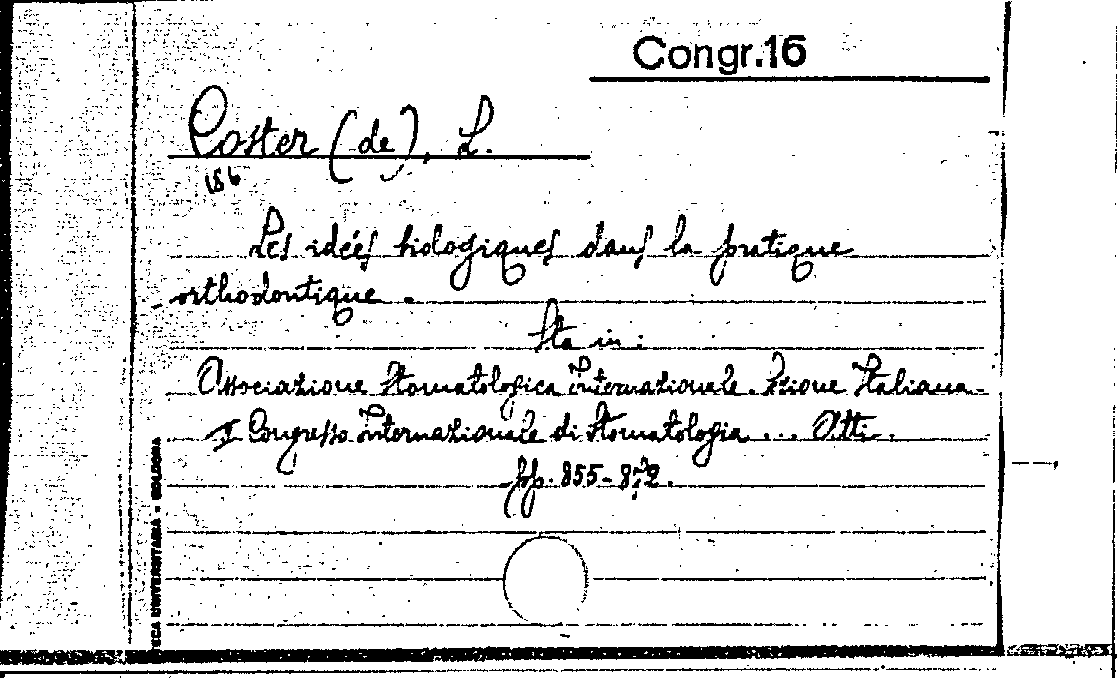 Congr.16
Coster (de), L.
186
Les idées biologiques dans la pratique
orthodontique.
Sta in:
Associazione Stomatologica Internazionale. Sezione Italiana.
I Congresso Internazionale di Stomatologia ... Atti.
pp. 855-872.
TECA UNIVERSITARIA - BOLOGNA